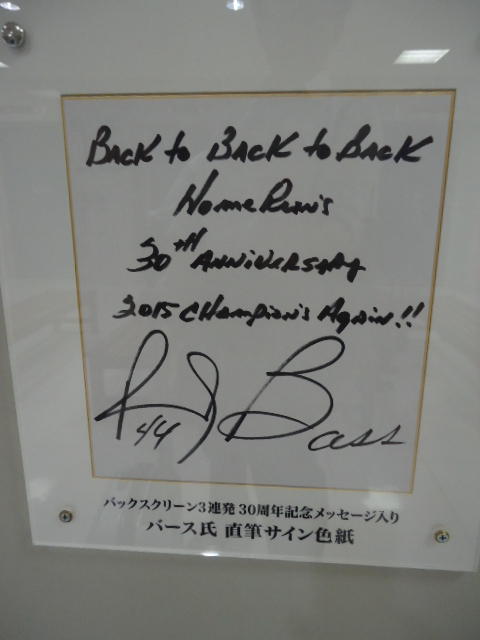 Back to Back to Back
Home Run's
30th Anniversary
2015 Champion's Again!!
R Bass
44
バックスクリーン3連発 30周年記念メッセージ入り
バース氏 直筆サイン色紙